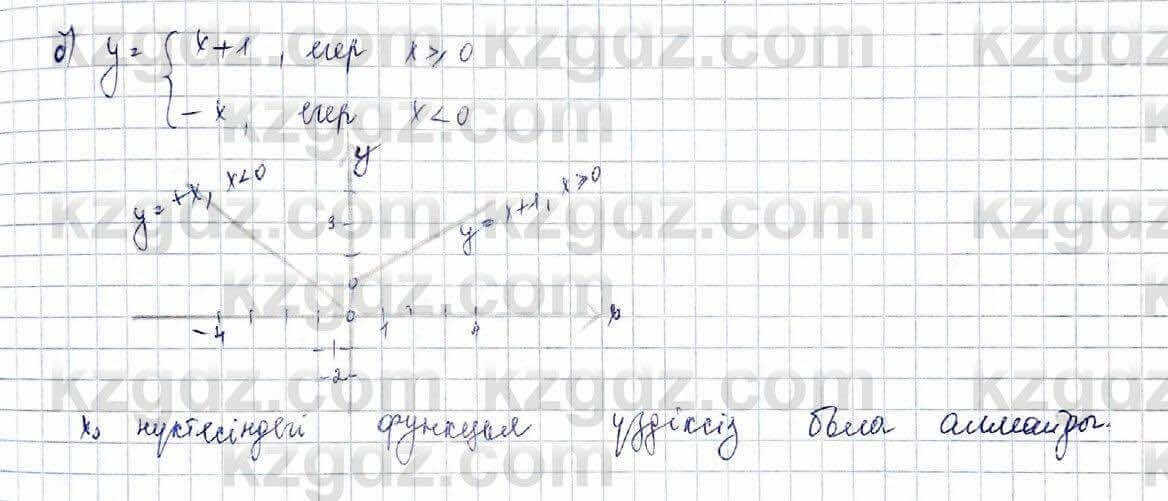 б) y = { x+1, егер x ≥ 0
− x, егер x < 0
y
y = +x, x<0
y = x+1, x≥0
3
0
−4 0 1 4 x
−1
−2
x₀ нүктесіндегі функция үздіксіз бола алмайды.
kzgdz.com